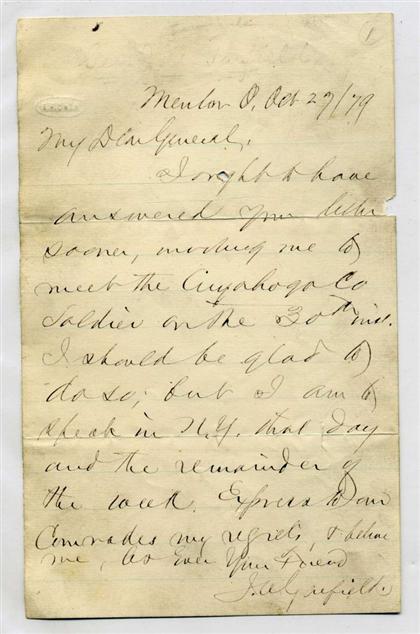 1
Mentor O, Oct 27/79
My Dear General,
I ought to have
answered your letter
sooner, inviting me to
meet the Cuyahoga Co
Soldier on the 30th inst.
I should be glad to
do so; but I am to
speak in N.Y. that day
and the remainder of
the week. Express to our
Comrades my regrets, & believe
me, as Ever Your Friend
J. A. Garfield.